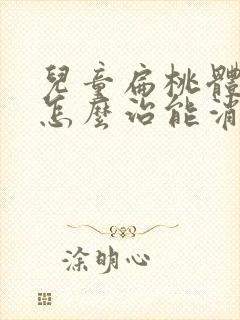 兒童扁桃體
怎麼治能消
涂明心